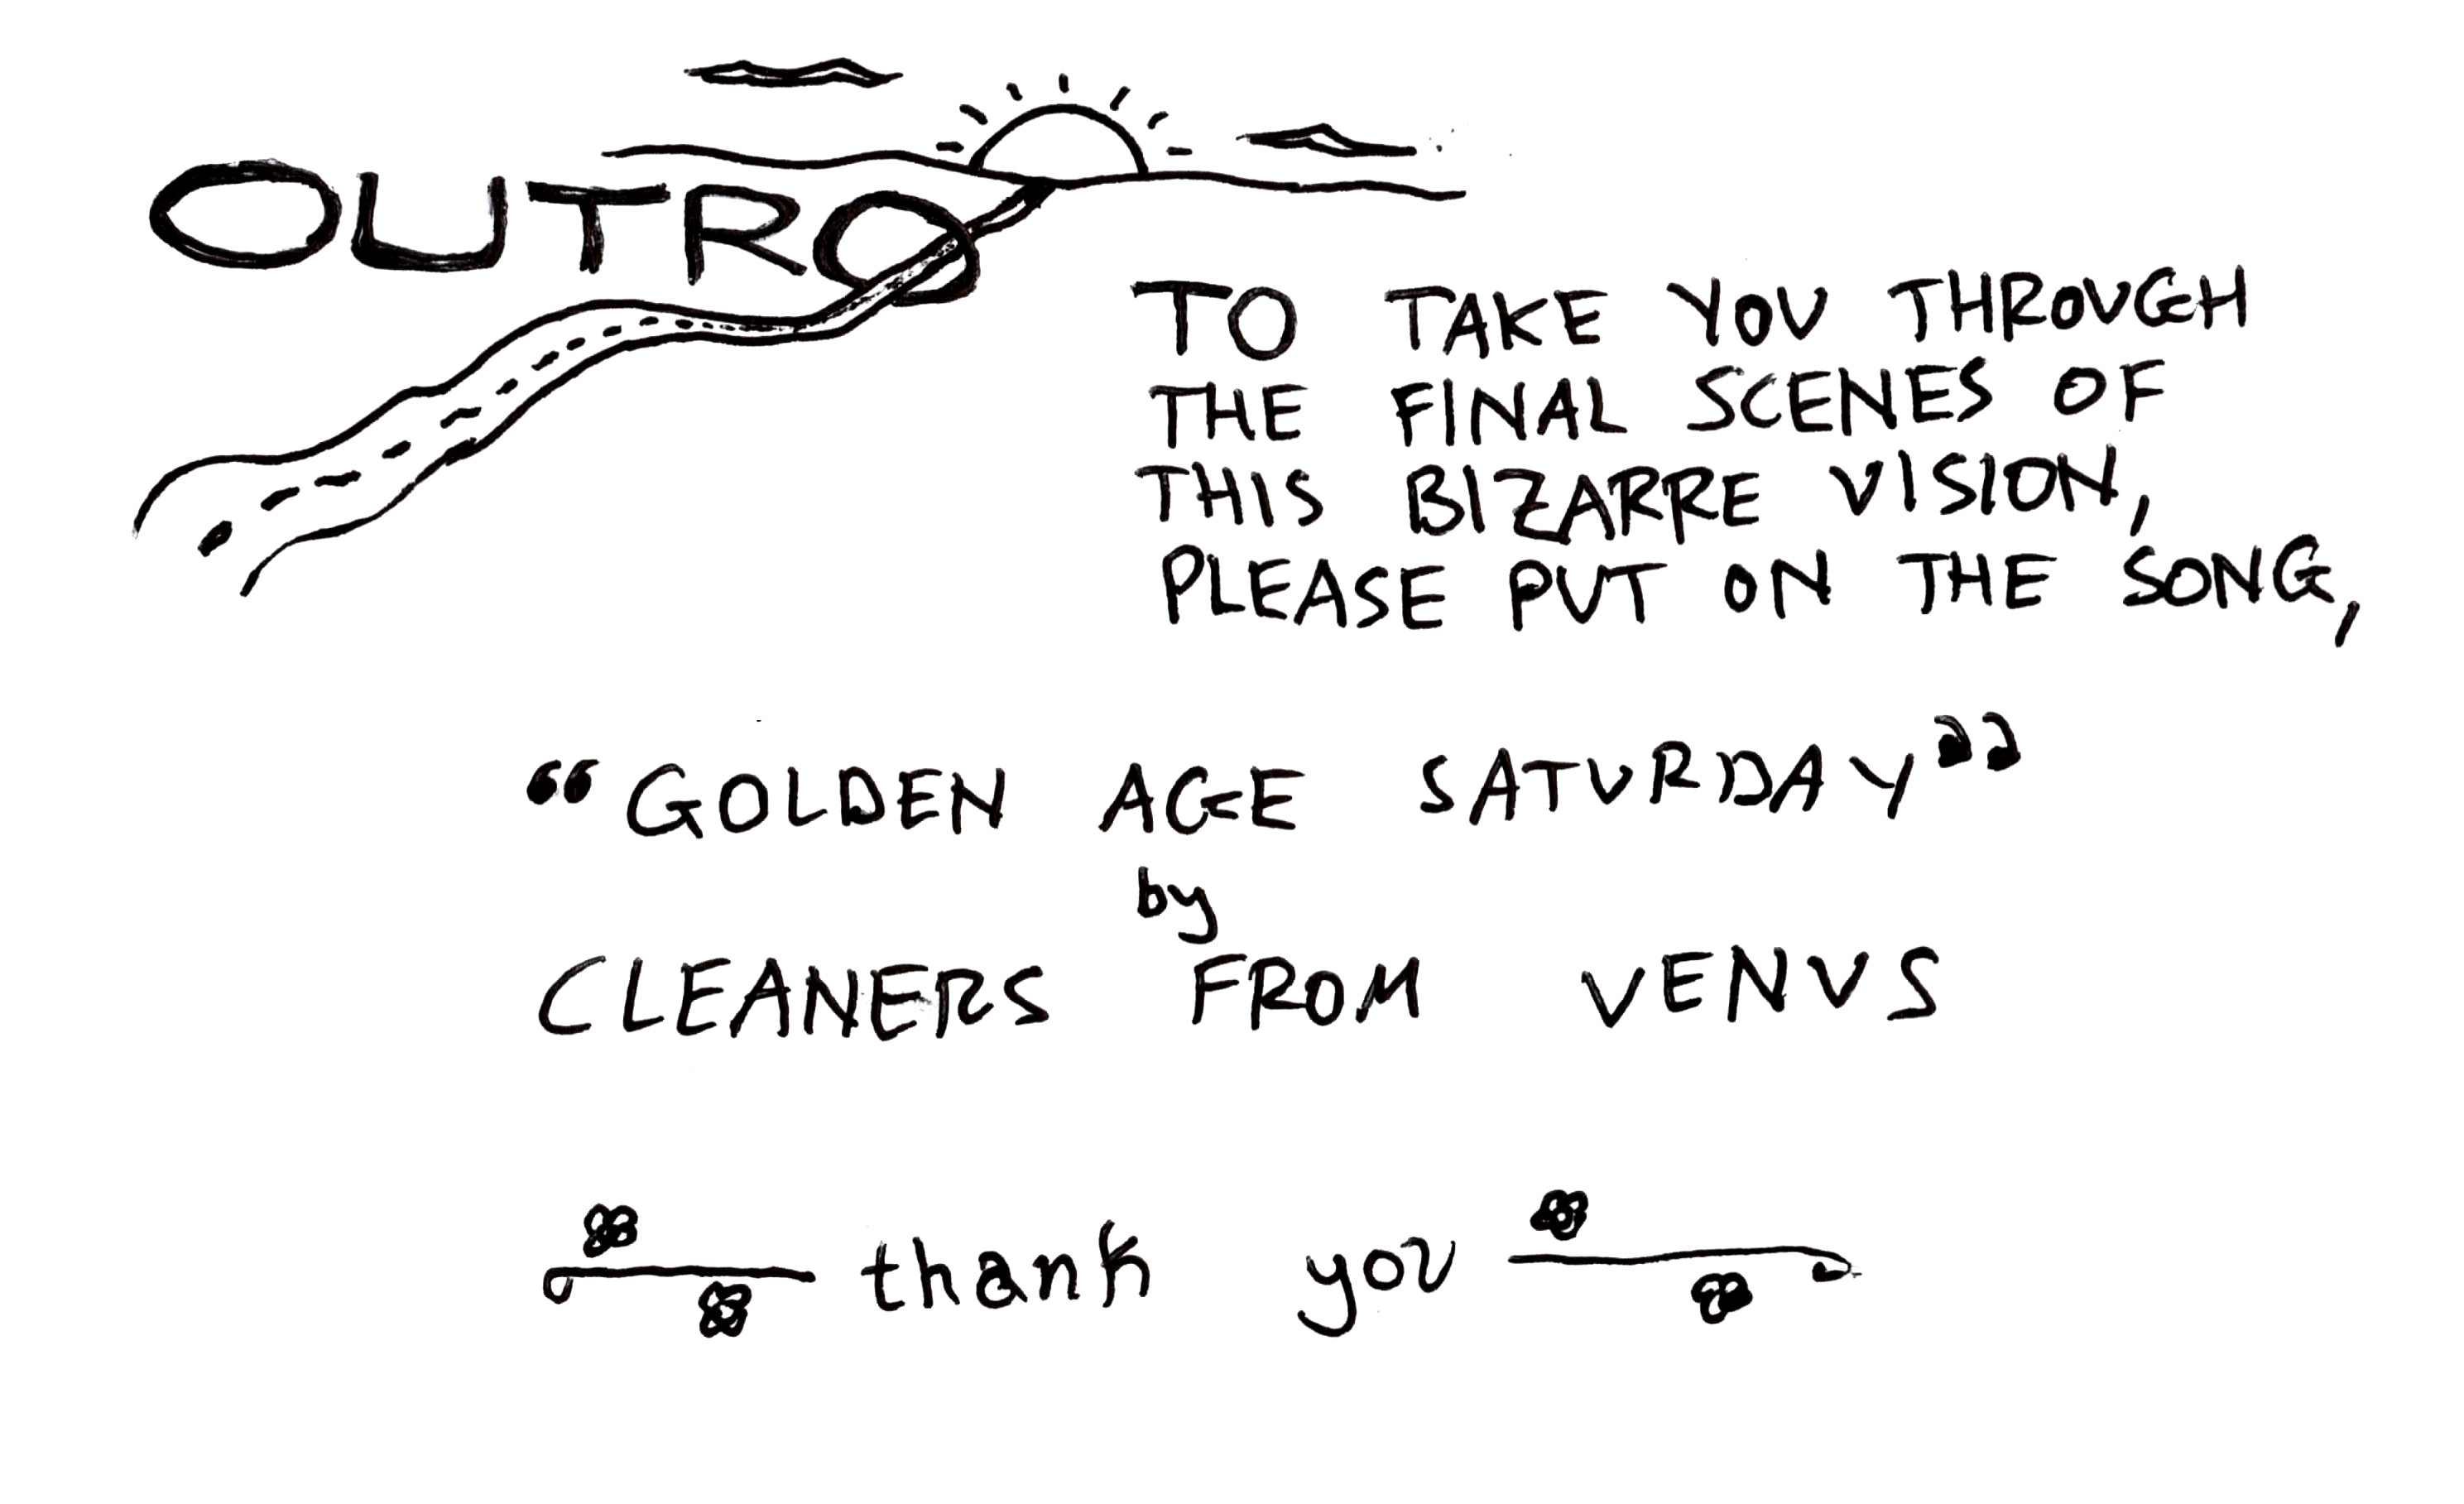 OUTRO
TO TAKE YOU THROUGH
THE FINAL SCENES OF
THIS BIZARRE VISION,
PLEASE PUT ON THE SONG,
“GOLDEN AGE SATURDAY”
by
CLEANERS FROM VENUS
thank you